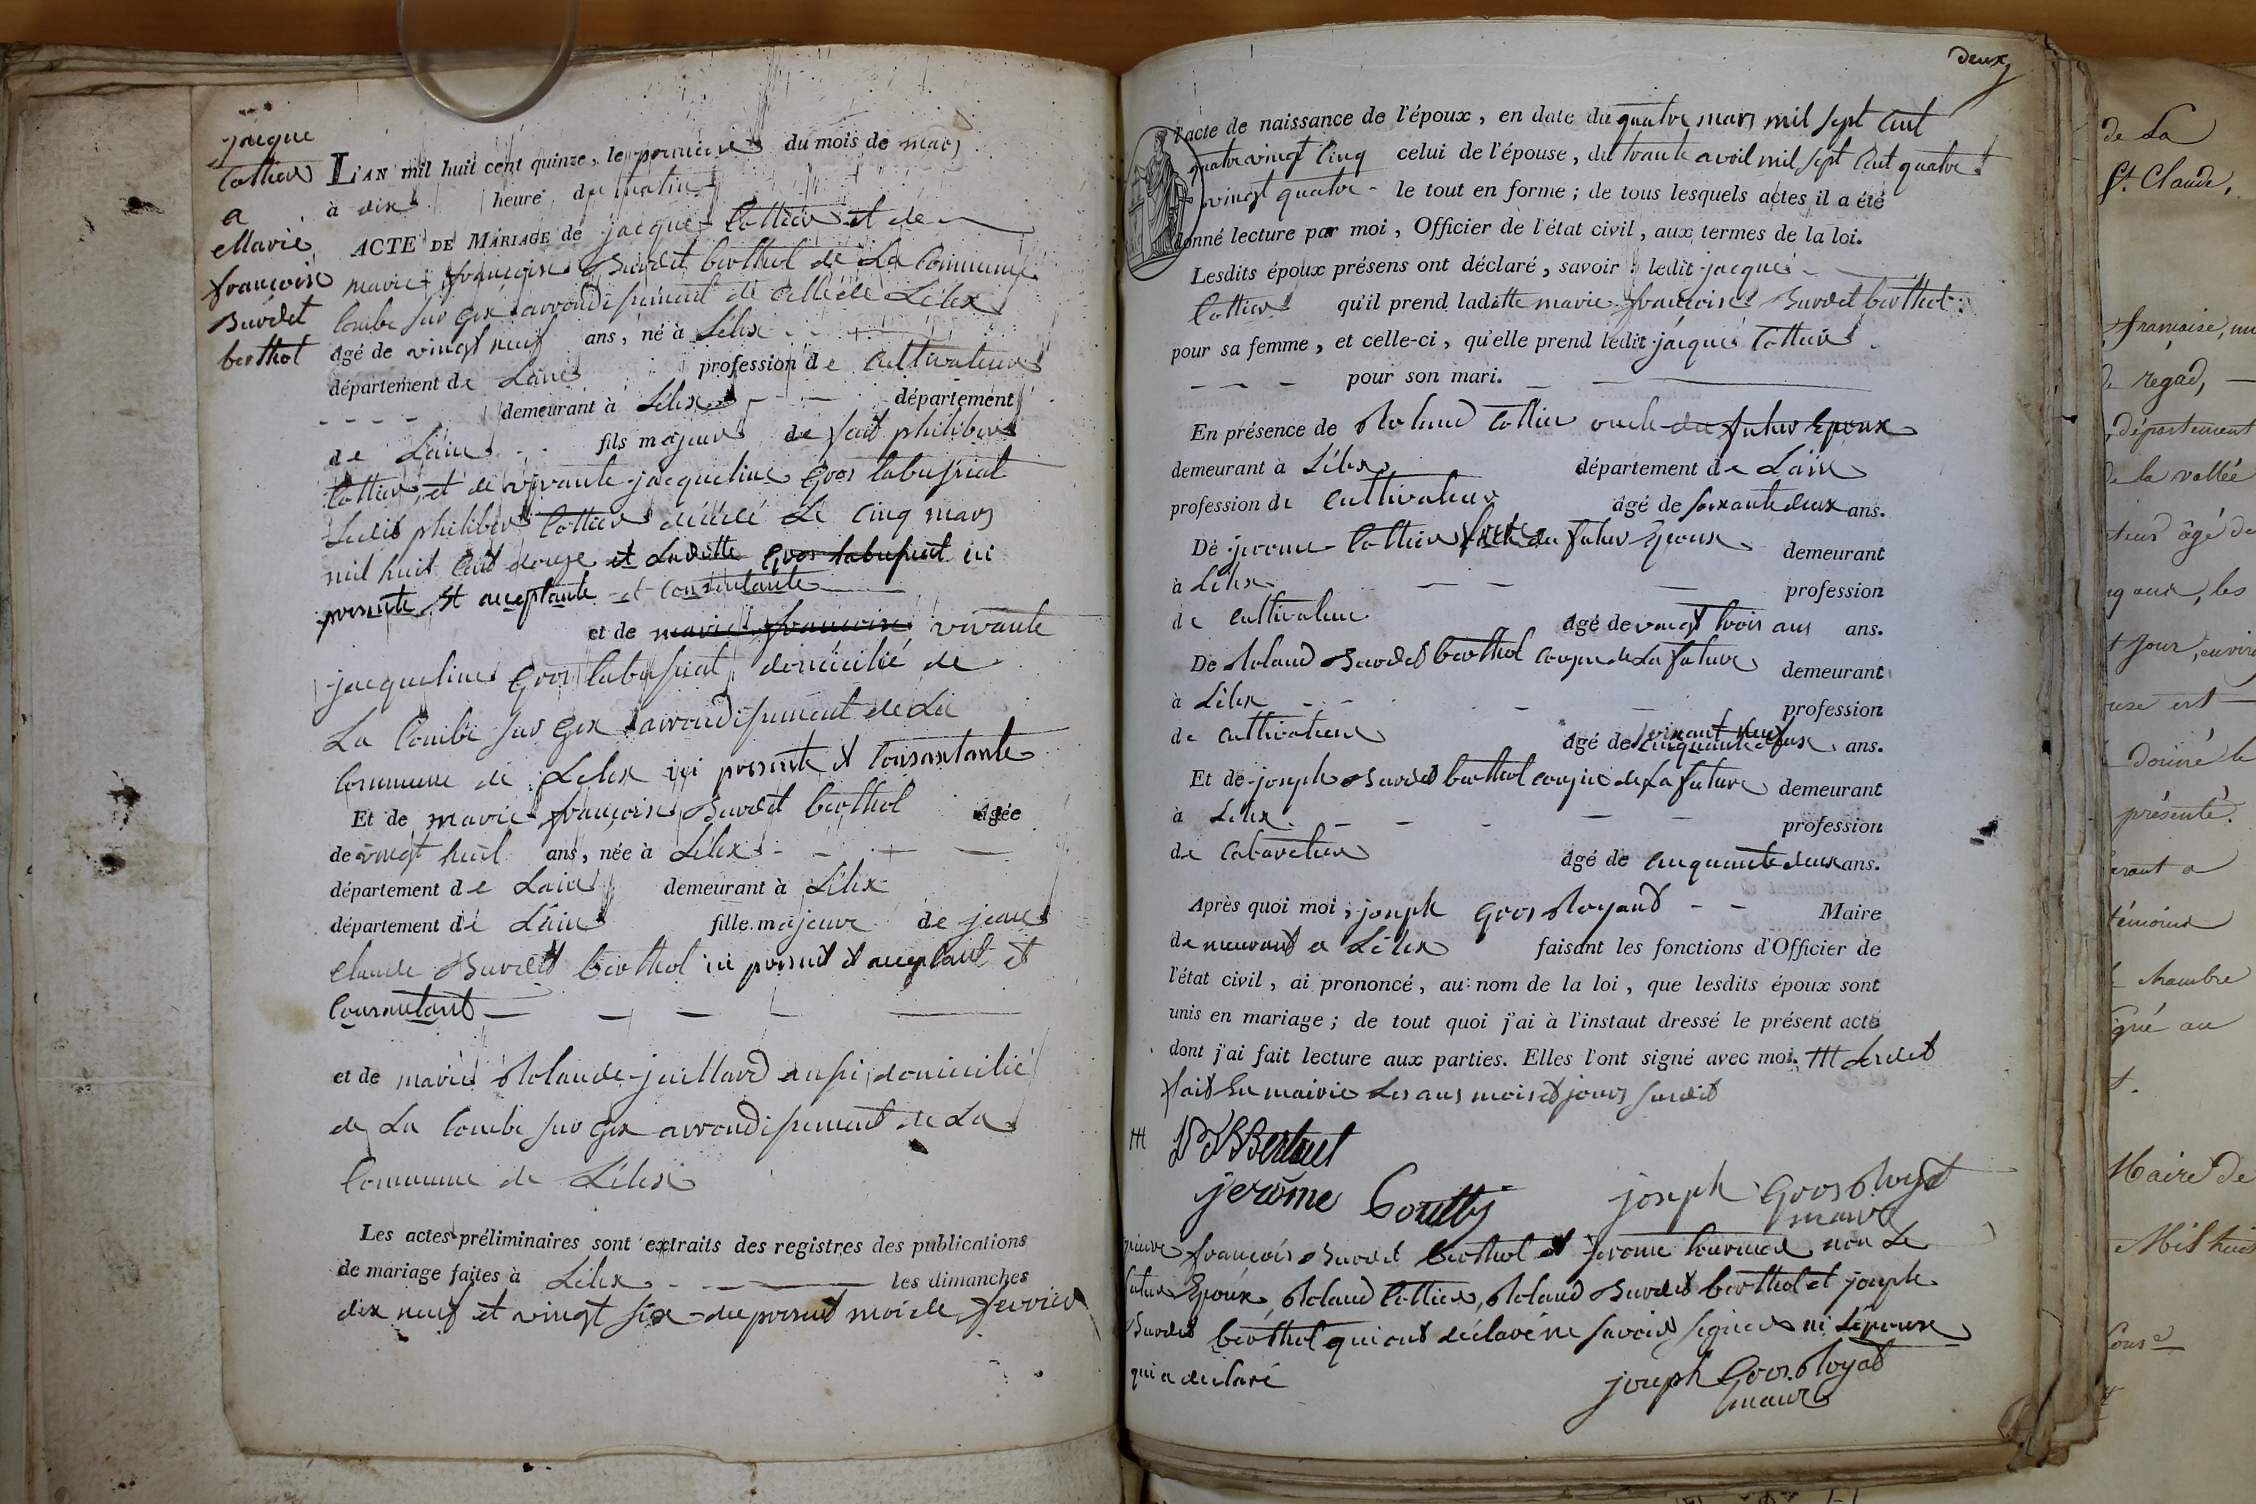 jacque
Cottier
a
Marie
françoise
Burdet
berthot
L'AN mil huit cent quinze, le premiere du mois de mars
à dix heure du matin
ACTE DE MARIAGE de jacque Cottier et de
marie françoise Burdet berthod de La Commune
Combe sur Gex arrondissement de celle de Lélex
âgé de vingt neuf ans, né à Lélex
département de Lain profession de Cultivateur
demeurant à Lélex département
de Lain fils majeur de fait philiber
Cottier, et de vivante jacqueline Gros labussiat
Ledit philiber Cottier décédé Le Cinq mars
mil huit Cent douze et Laditte Gros labussiat ici
presente et acceptante et Consentante
et de marie françoise vivante
jacqueline Gros labussiat domicilié de
La Combe sur Gex arrondissement de La
Commune de Lelex ici presente et Consantante
Et de marie françoise Burdet berthod âgée
de vingt huit ans, née à Lélex
département de Lain demeurant à Lélex
département de Lain fille majeure de jean
Claude Burdet berthod ici present et acceptant et
Consantant
et de marie Rolande juillard aussi domicilié
de La Combe sur Gex arrondissement de La
Commune de Lélex
Les actes préliminaires sont extraits des registres des publications
de mariage faites à Lélex les dimanches
dix neuf et vingt six du present moi de fevrier
deux
l'acte de naissance de l'époux, en date du quatre mars mil sept Cent
quatre vingt Cinq celui de l'épouse, du trante avril mil sept Cent quatre
vingt quatre le tout en forme; de tous lesquels actes il a été
donné lecture par moi, Officier de l'état civil, aux termes de la loi.
Lesdits époux présens ont déclaré, savoir: ledit jacque
Cottier qu'il prend ladite marie françoise Burdet berthod
pour sa femme, et celle-ci, qu'elle prend ledit jacque Cottier
pour son mari.
En présence de Roland Cottier oncle du futur Epoux
demeurant à Lélex département de Lain
profession de Cultivateur âgé de soixante deux ans.
De jerome Cottier frere du futur Epoux demeurant
à Lélex profession
de Cultivateur âgé de vingt trois ans ans.
De Roland Burdet berthod Cousin de La future demeurant
à Lélex profession
de Cultivateur âgé de soixant neuf ans.
Et de joseph Burdet berthod cousin de La future demeurant
à Lélex profession
de Cabaretier âgé de cinquante deux ans.
Après quoi moi, joseph Gros Royaud Maire
demeurant a Lélex faisant les fonctions d'Officier de
l'état civil, ai prononcé, au nom de la loi, que lesdits époux sont
unis en mariage; de tout quoi j'ai à l'instaut dressé le présent acte
dont j'ai fait lecture aux parties. Elles l'ont signé avec moi.
fait En mairie Les ans mois et jours susdit
jerome
joseph Gros Royat
maire
françois Burdet Berthod et jerome non Le
futur Epoux, Roland Cottier, Roland Burdet berthod et joseph
Burdet berthod qui ont déclaré ne savoir signer ni Lépouse
qui a declaré
joseph Gros Royat
maire
de La
St. Claude,
française,
de regad,
département
de la vallée
âgé de
les
jour,
donné le
présenté.
a
témoins
chambre
au
Maire de
Mil huit